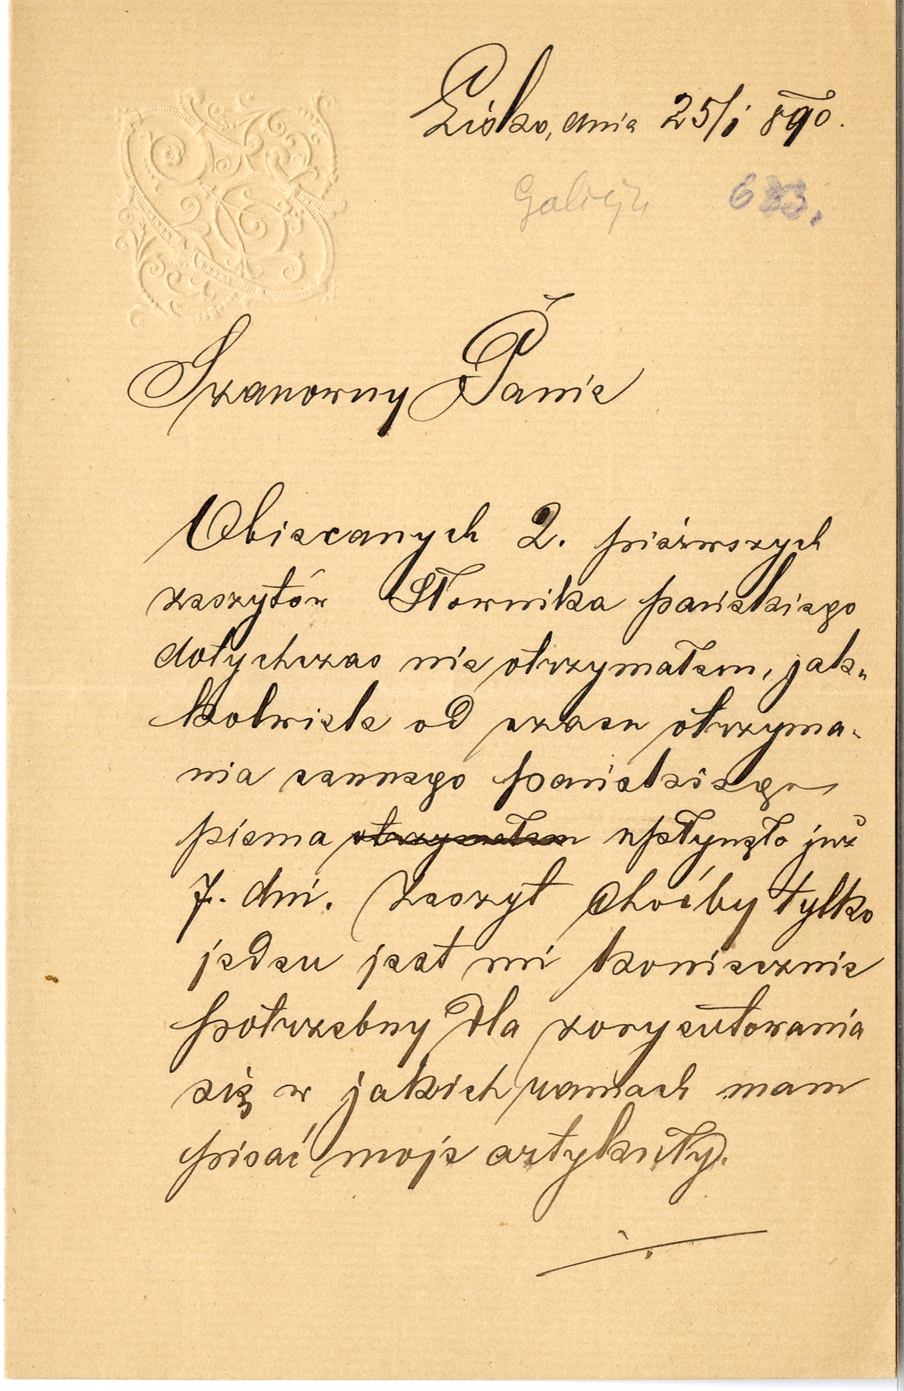 Lisko, dnia 25/I 890.
Galicja 633.
Szanowny Panie
Obiecanych 2. piérwszych
zeszytów Słownika pańskiego
dotychczas nie otrzymałem, jak-
kolwiek od czasu otrzyma-
nia cennego pańskiego
pisma otrzymałem upłynęło już
7. dni. Zeszyt choćby tylko
jeden jest mi koniecznie
potrzebny dla zoryentowania
się w jakich ramach mam
pisać moje artykuły.